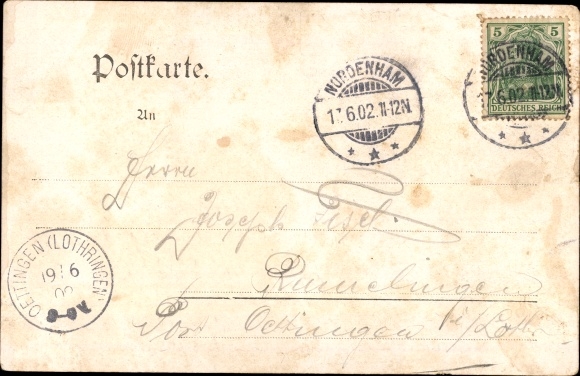 Postkarte.
NORDENHAM
17.6.02.11-12N.
5
DEUTSCHES REICH
NORDENHAM
.6.02.11-12N.
An
Herrn
Joseph
Rümelingen
Post Oettingen i/Loth.
OETTINGEN (LOTHRINGEN)
19 6
02